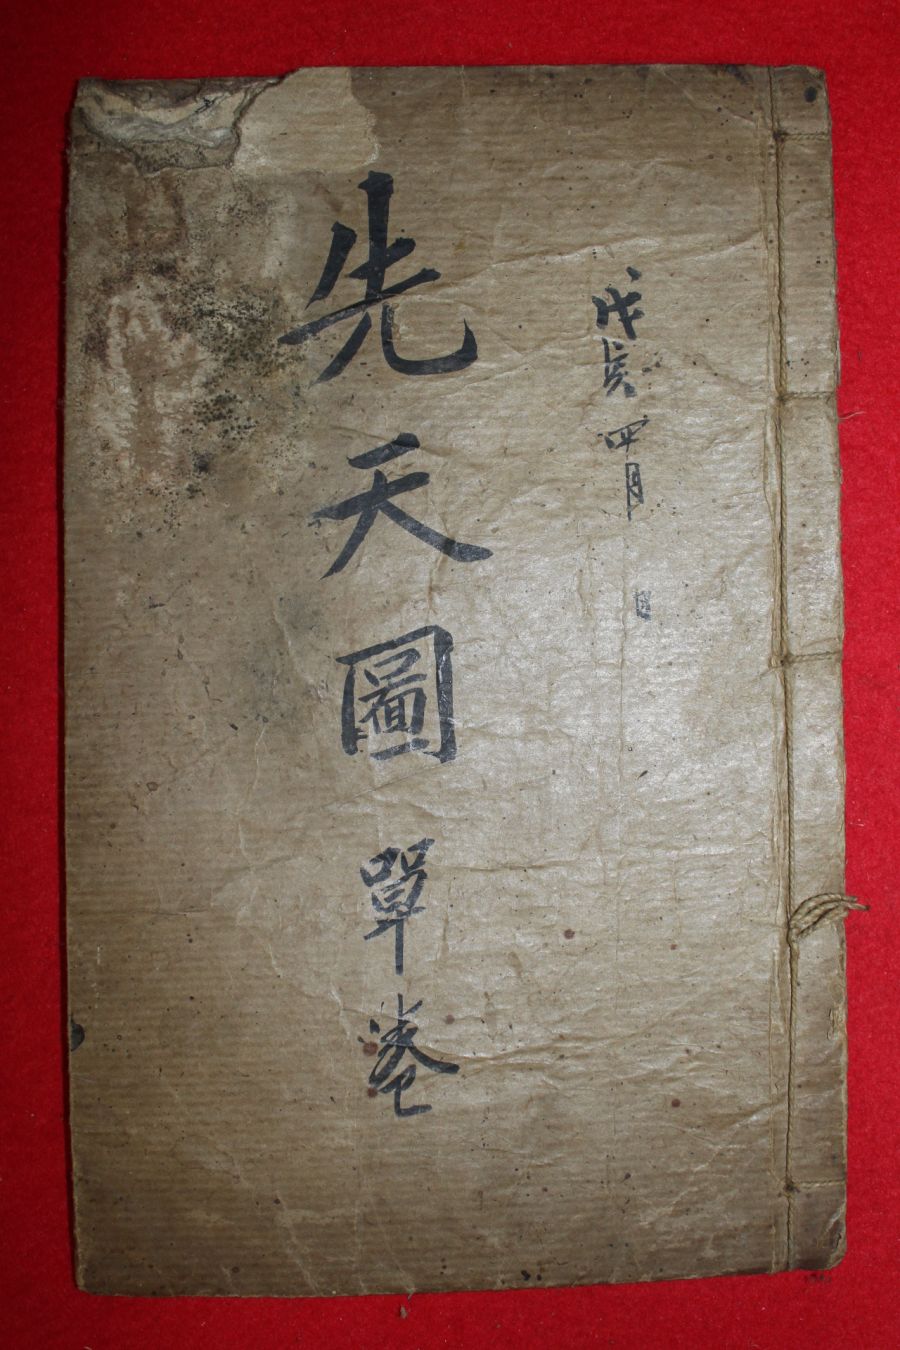 戊寅 四月 日
先天圖 單卷